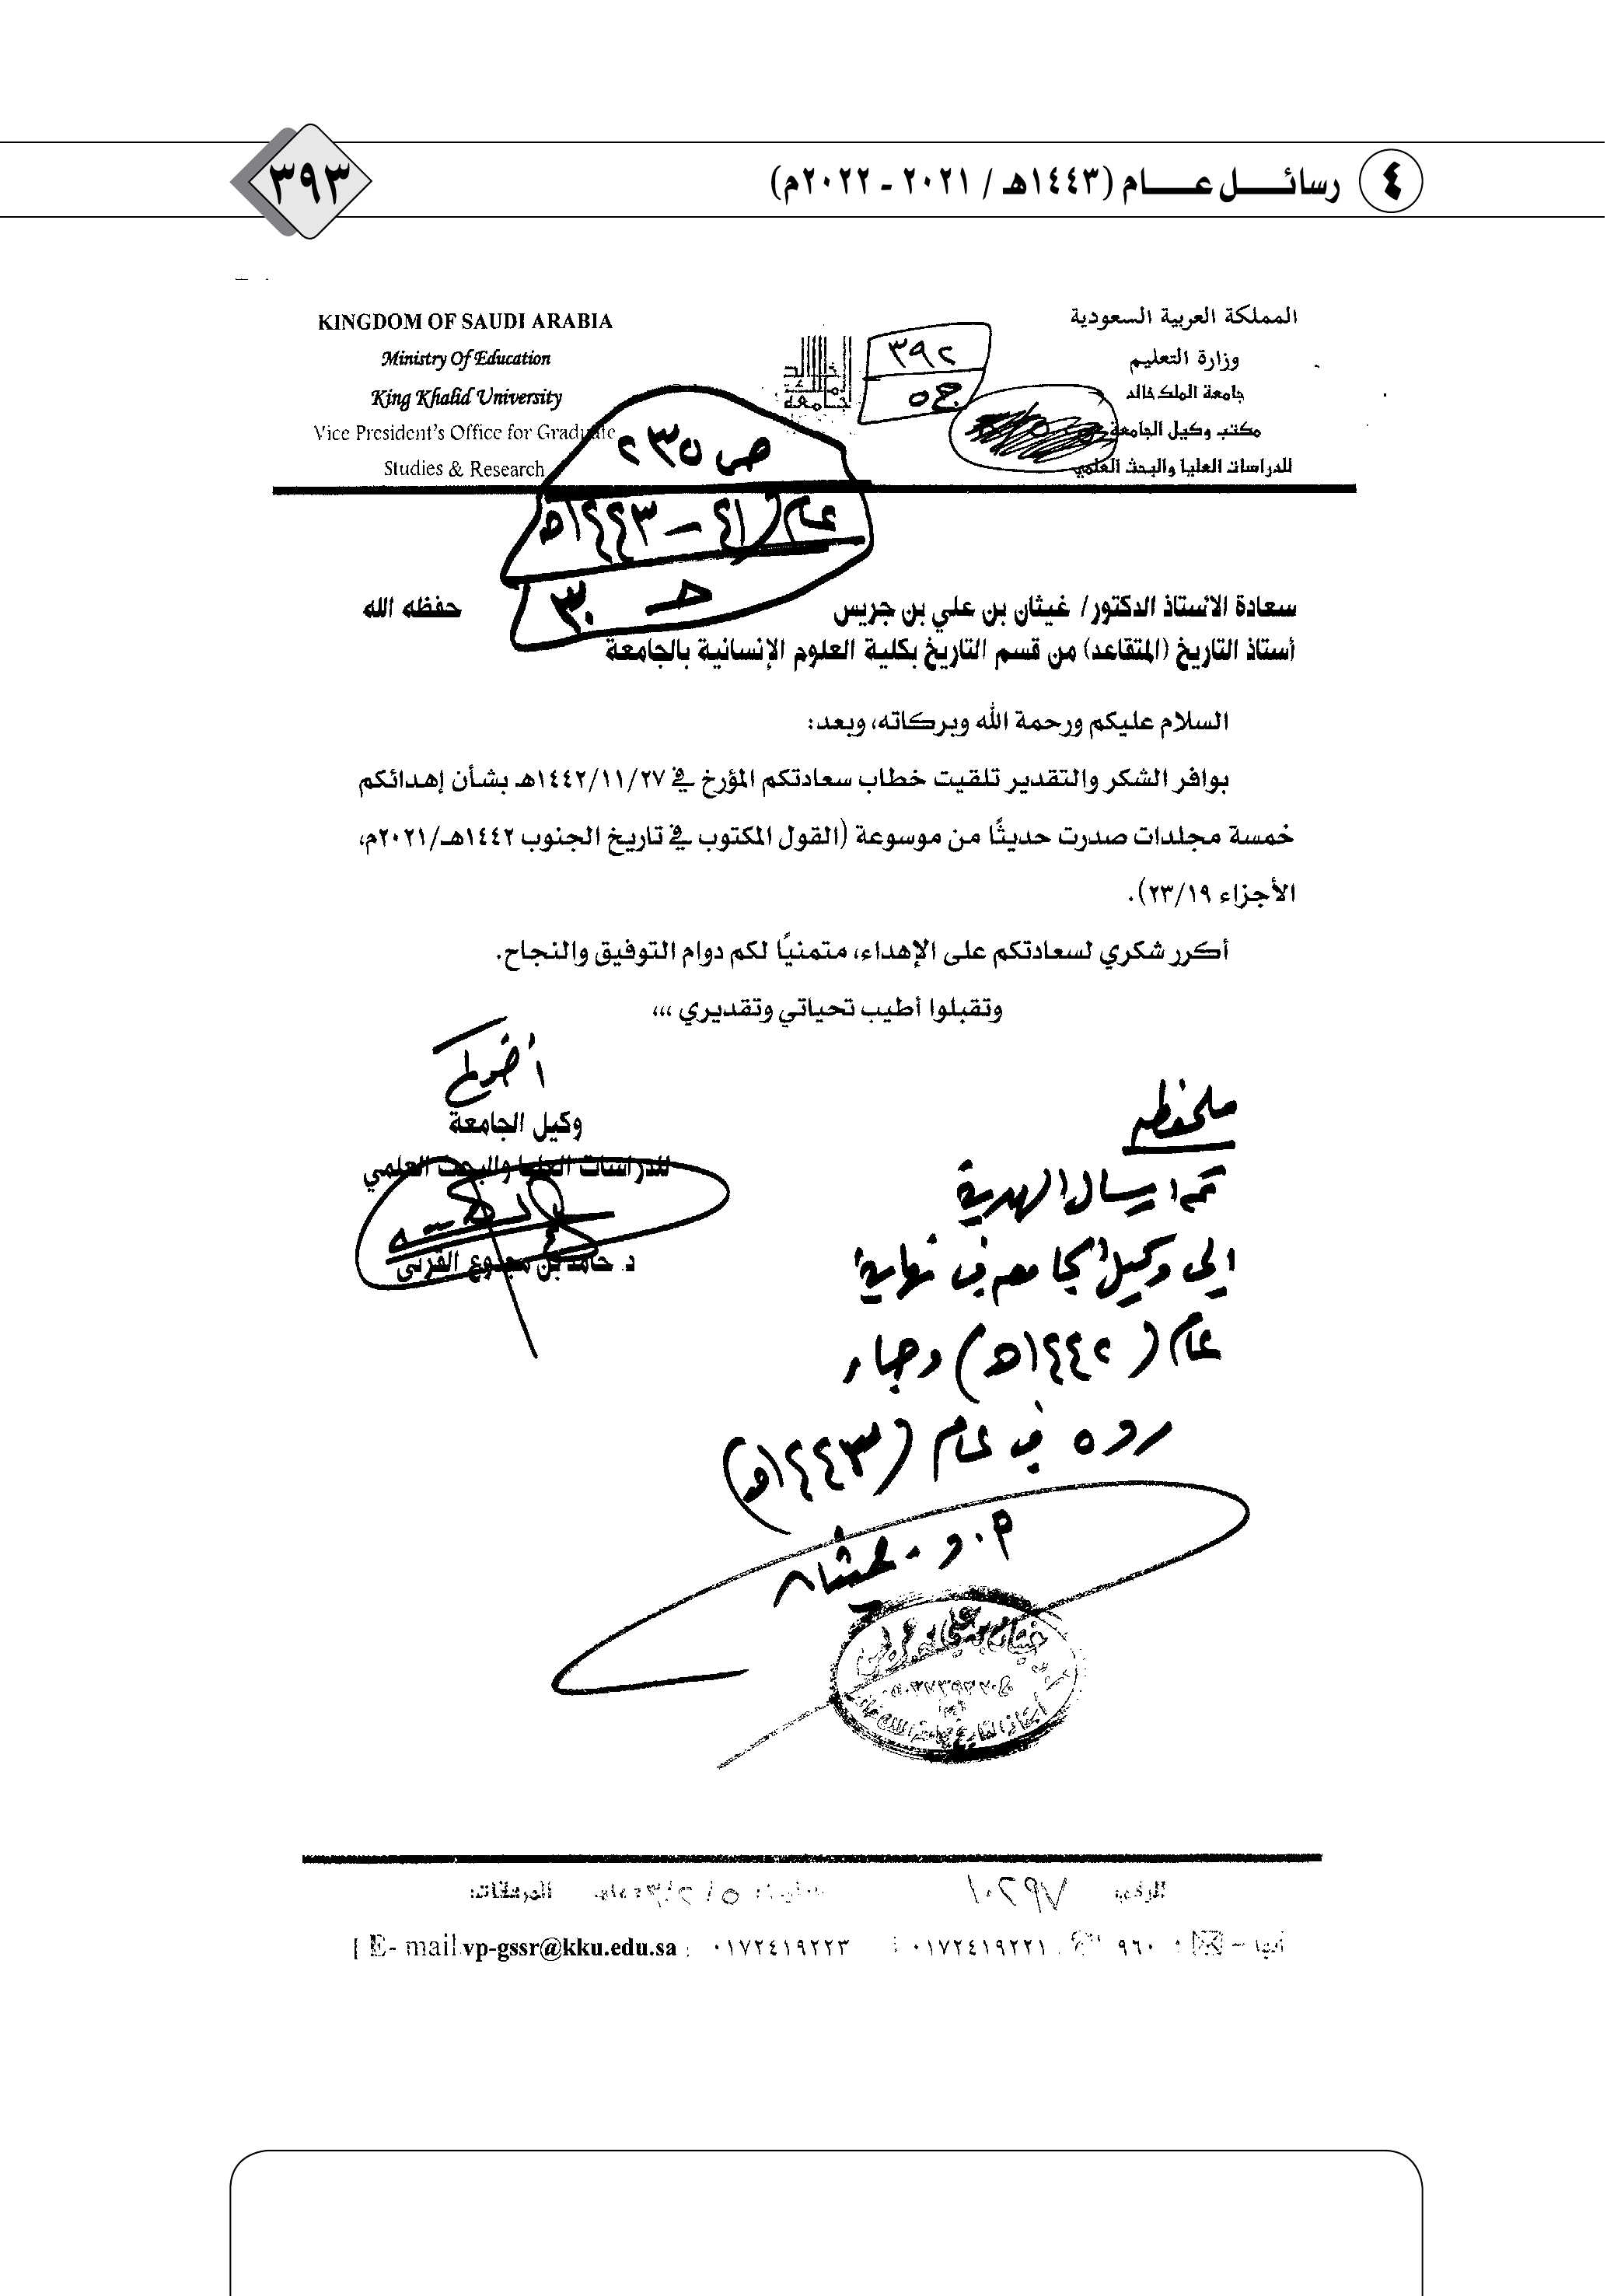 ٤ رسائل عام (١٤٤٣هـ / ٢٠٢١ - ٢٠٢٢م)
٣٩٣
المملكة العربية السعودية
وزارة التعليم
جامعة الملك خالد
مكتب وكيل الجامعة
للدراسات العليا والبحث العلمي
٣٩٢
ج ٥
KINGDOM OF SAUDI ARABIA
Ministry Of Education
King Khalid University
Vice President's Office for Graduate
Studies & Research
ص ٢٣٥
عام (٤١ – ١٤٤٣هـ
سعادة الأستاذ الدكتور/ غيثان بن علي بن جريس حفظه الله
أستاذ التاريخ (المتقاعد) من قسم التاريخ بكلية العلوم الإنسانية بالجامعة
السلام عليكم ورحمة الله وبركاته، وبعد:
بوافر الشكر والتقدير تلقيت خطاب سعادتكم المؤرخ في ١٤٤٢/١١/٢٧هـ بشأن إهدائكم
خمسة مجلدات صدرت حديثًا من موسوعة (القول المكتوب في تاريخ الجنوب ١٤٤٢هـ/٢٠٢١م،
الأجزاء ٢٣/١٩).
أكرر شكري لسعادتكم على الإهداء، متمنيًا لكم دوام التوفيق والنجاح.
وتقبلوا أطيب تحياتي وتقديري ،،،
أخوكم
وكيل الجامعة
للدراسات العليا والبحث العلمي
د. حامد بن مجدوع القرني
ملحوظه
تم ارسال الهدية
الى وكيل الجامعه في نهاية
عام (١٤٤٢هـ) وجاء
رده في عام (١٤٤٣هـ)
أ. د. غيثان
الرقم ١٠٢٩٧ المرفقات:
أبها – : ٩٦٠ ٠١٧٢٤١٩٢٢١ : ٠١٧٢٤١٩٢٢٣ E- mail.vp-gssr@kku.edu.sa